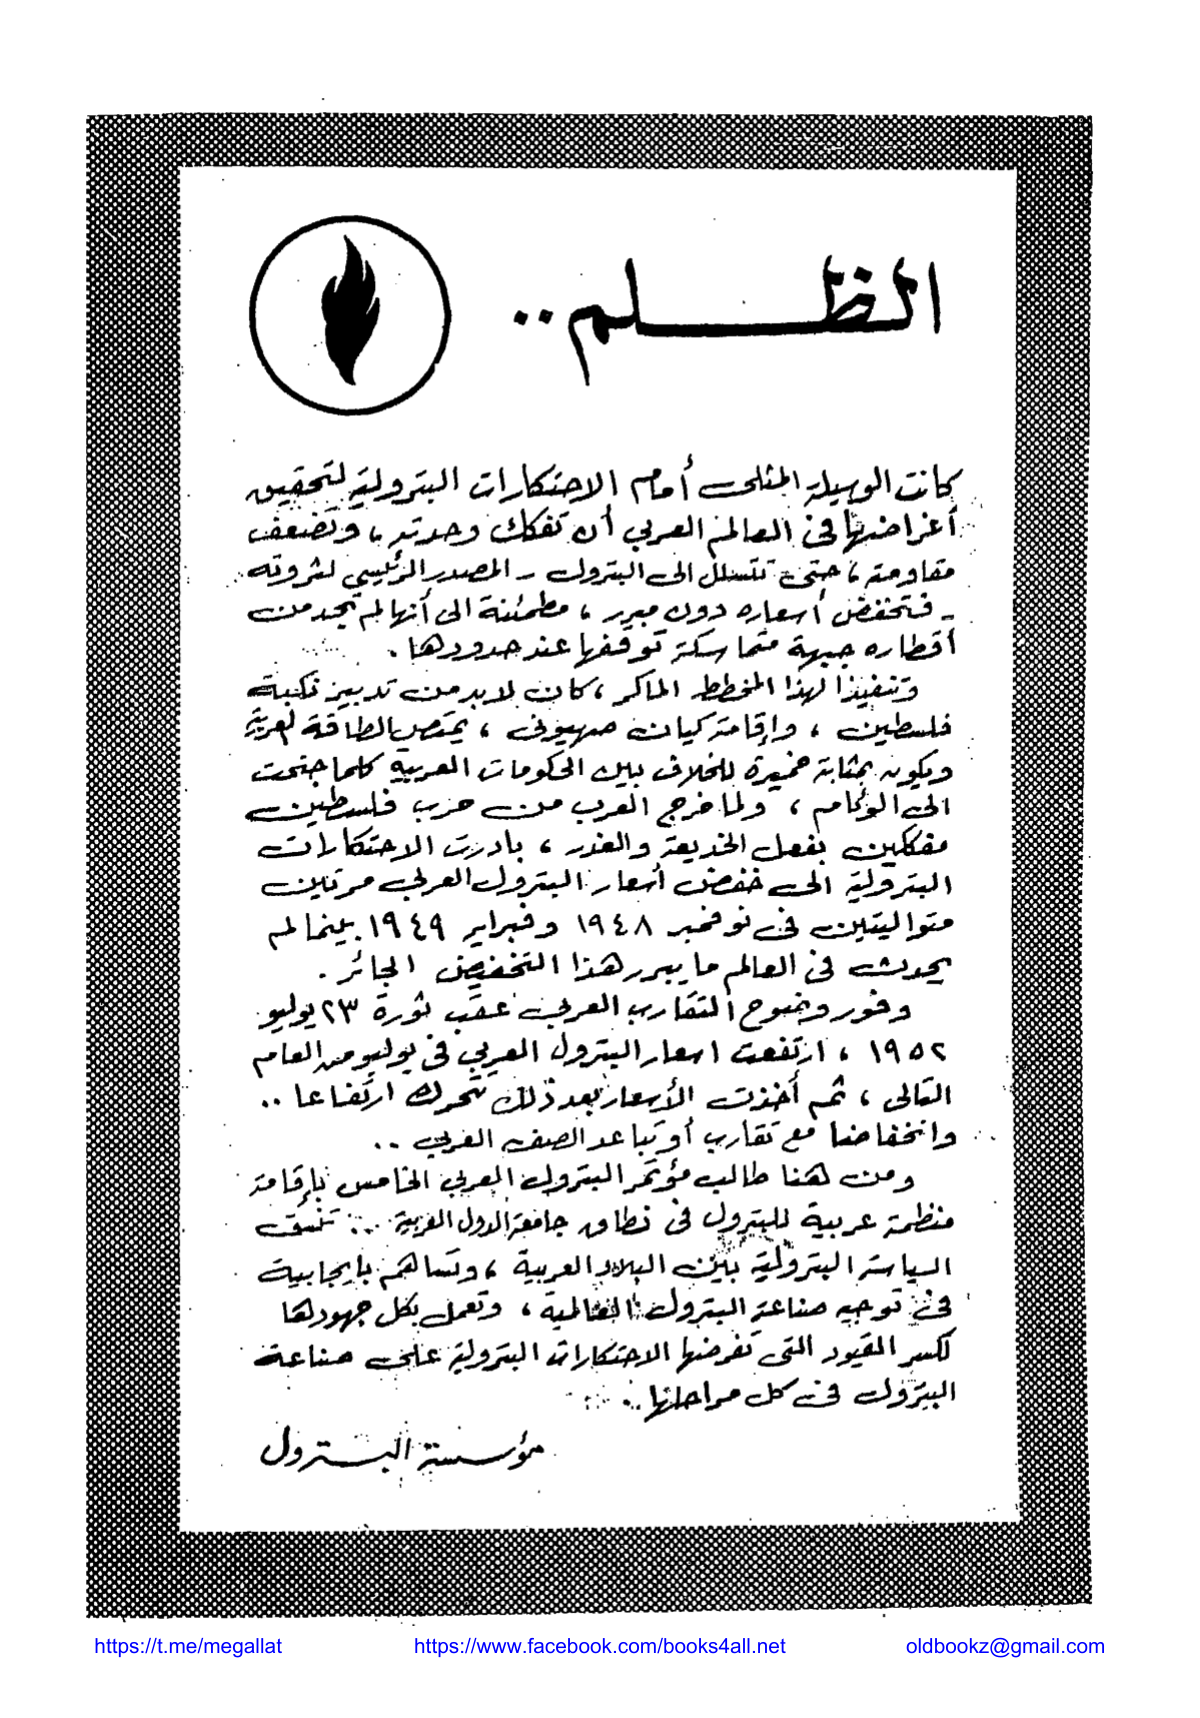 الظلم ..
كانت الوسيلة المثلى أمام الاحتكارات البترولية لتحقيق
أغراضها فى العالم العربي أن تفكك وحدته ، وتضعف
مقاومته ، حتى تتسلل الى البترول ـ المصدر الرئيسي لثروته
ـ فتخفض أسعاره دون مبرر ، مطمئنة الى أنها لم تجد من
أقطاره جبهة متماسكة توقفها عند حدودها .
وتنفيذا لهذا المخطط الماكر ، كان لابد من تدبير نكبة
فلسطين ، وإقامة كيان صهيونى ، يمتص الطاقة العربية
ويكون بمثابة خميرة للخلاف بين الحكومات العربية كلما جنحت
الى الوئام ، ولما خرج العرب من حرب فلسطين
مفككين بفعل الخديعة والغدر ، بادرت الاحتكارات
البترولية الى خفض أسعار البترول العربي مرتين
متواليتين فى نوفمبر ١٩٤٨ وفبراير ١٩٤٩ بينما لم
يحدث فى العالم ما يبرر هذا التخفيض الجائر .
وفور وضوح التقارب العربي عقب ثورة ٢٣ يوليو
١٩٥٢ ، ارتفعت اسعار البترول العربي فى يوليو من العام
التالى ، ثم أخذت الأسعار بعد ذلك تتحرك ارتفاعا ..
وانخفاضا مع تقارب أو تباعد الصف العربي ..
ومن هنا طالب مؤتمر البترول العربي الخامس بإقامة
منظمة عربية للبترول فى نطاق جامعة الدول العربية .. تنسق
السياسة البترولية بين البلاد العربية ، وتساهم بايجابية
فى توجيه صناعة البترول العالمية ، وتعمل بكل جهودها
لكسر القيود التى تفرضها الاحتكارات البترولية على صناعة
البترول فى كل مراحلها ..
مؤسسة البترول
https://t.me/megallat https://www.facebook.com/books4all.net oldbookz@gmail.com